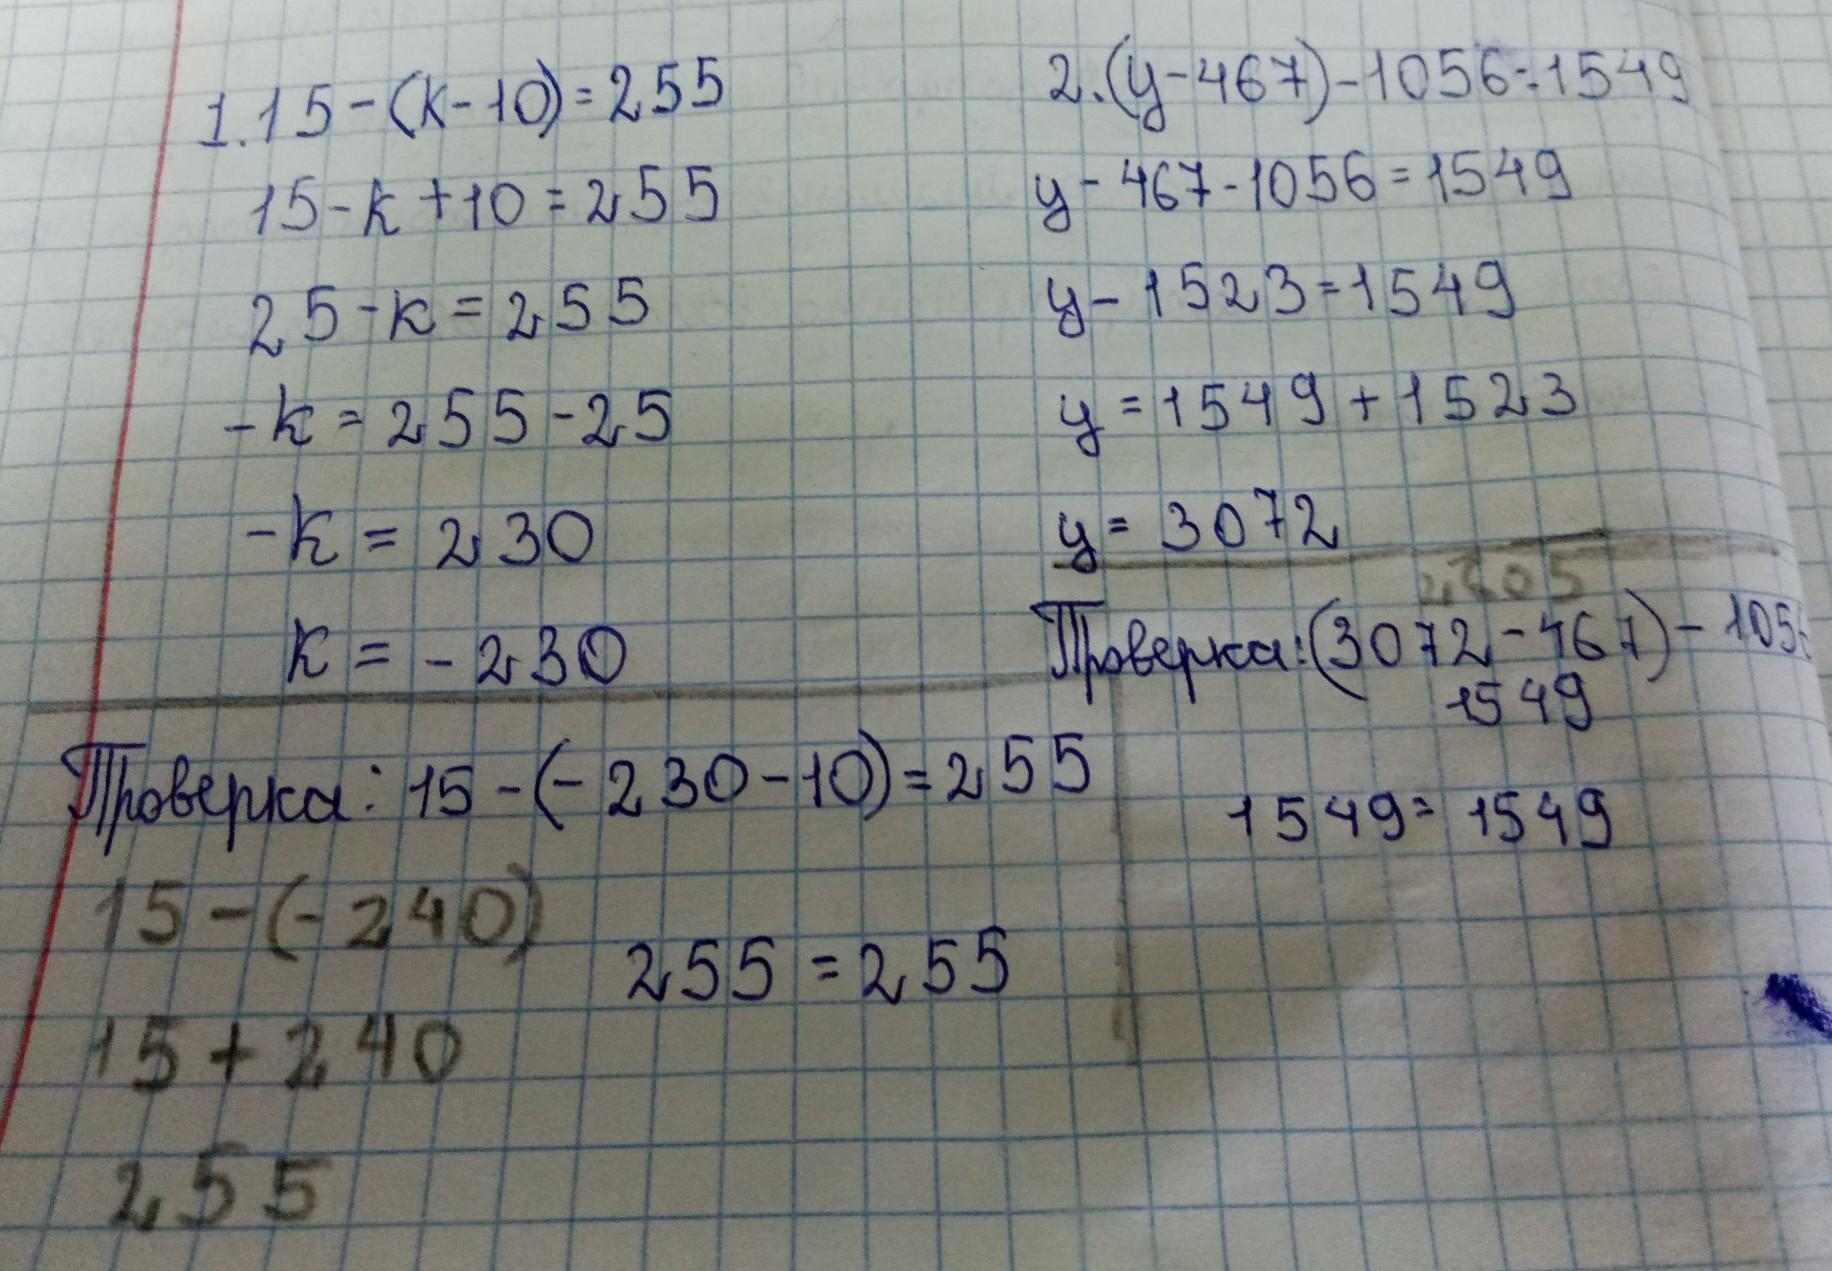 1. 15-(k-10)=255
15-k+10=255
25-k=255
-k=255-25
-k=230
k=-230
Проверка: 15-(-230-10)=255
15-(-240)
255=255
15+240
255
2. (y-467)-1056=1549
y-467-1056=1549
y-1523=1549
y=1549+1523
y=3072
Проверка: (3072-467)-1056
1549
1549=1549